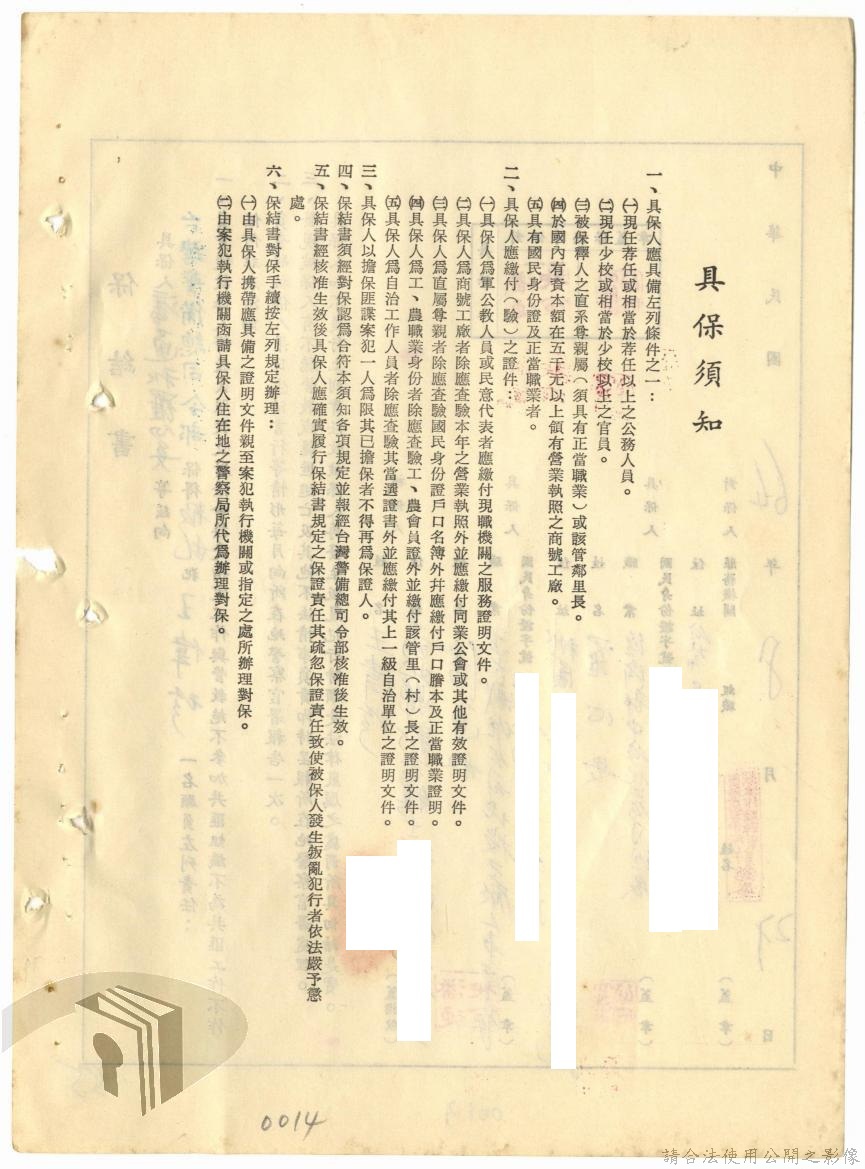 具保須知
一、具保人應具備左列條件之一：
㈠現任荐任或相當於荐任以上之公務人員。
㈡現任少校或相當於少校以上之官員。
㈢被保釋人之直系尊親屬（須具有正當職業）或該管鄰里長。
㈣於國內有資本額在五千元以上領有營業執照之商號工廠。
㈤具有國民身份證及正當職業者。
二、具保人應繳付（驗）之證件：
㈠具保人爲軍公教人員或民意代表者應繳付現職機關之服務證明文件。
㈡具保人爲商號工廠者除應查驗本年之營業執照外並應繳付同業公會或其他有效證明文件。
㈢具保人爲直屬尊親者除應查驗國民身份證戶口名簿外幷應繳付戶口謄本及正當職業證明。
㈣具保人爲工、農職業身份者除應查驗工、農會員證外並繳付該管里（村）長之證明文件。
㈤具保人爲自治工作人員者除應查驗其當選證書外並應繳付其上一級自治單位之證明文件。
三、具保人以擔保匪諜案犯一人爲限其已擔保者不得再爲保證人。
四、保結書須經對保認爲合符本須知各項規定並報經台灣警備總司令部核准後生效。
五、保結書經核准生效後具保人應確實履行保結書規定之保證責任其疏忽保證責任致使被保人發生叛亂犯行者依法嚴予懲
處。
六、保結書對保手續按左列規定辦理：
㈠由具保人携帶應具備之證明文件親至案犯執行機關或指定之處所辦理對保。
㈡由案犯執行機關函請具保人住在地之警察局所代爲辦理對保。
0014
請合法使用公開之影像